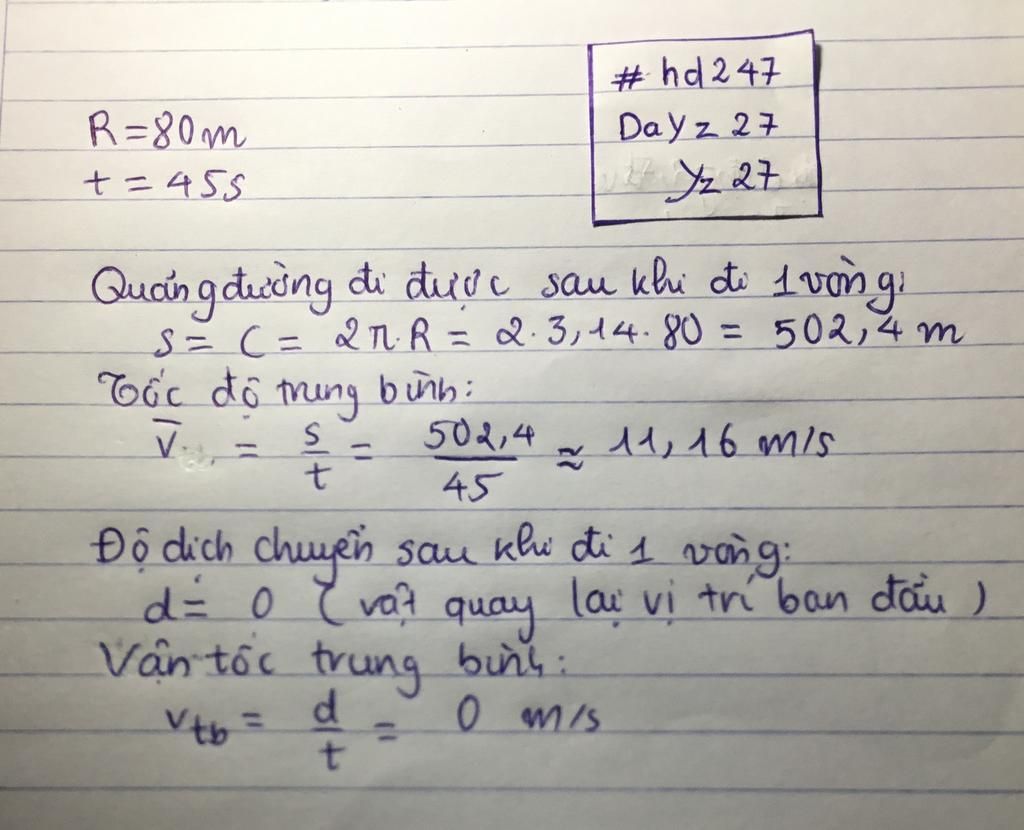 # hd247
DaYz 27
Yz 27
R = 80m
t = 45s
Quãng đường đi được sau khi đi 1 vòng:
s = C = 2π.R = 2.3,14.80 = 502,4 m
Tốc độ trung bình:
v̅ = s/t = 502,4/45 ≈ 11,16 m/s
Độ dịch chuyển sau khi đi 1 vòng:
d = 0 (vật quay lại vị trí ban đầu)
Vận tốc trung bình:
vtb = d/t = 0 m/s